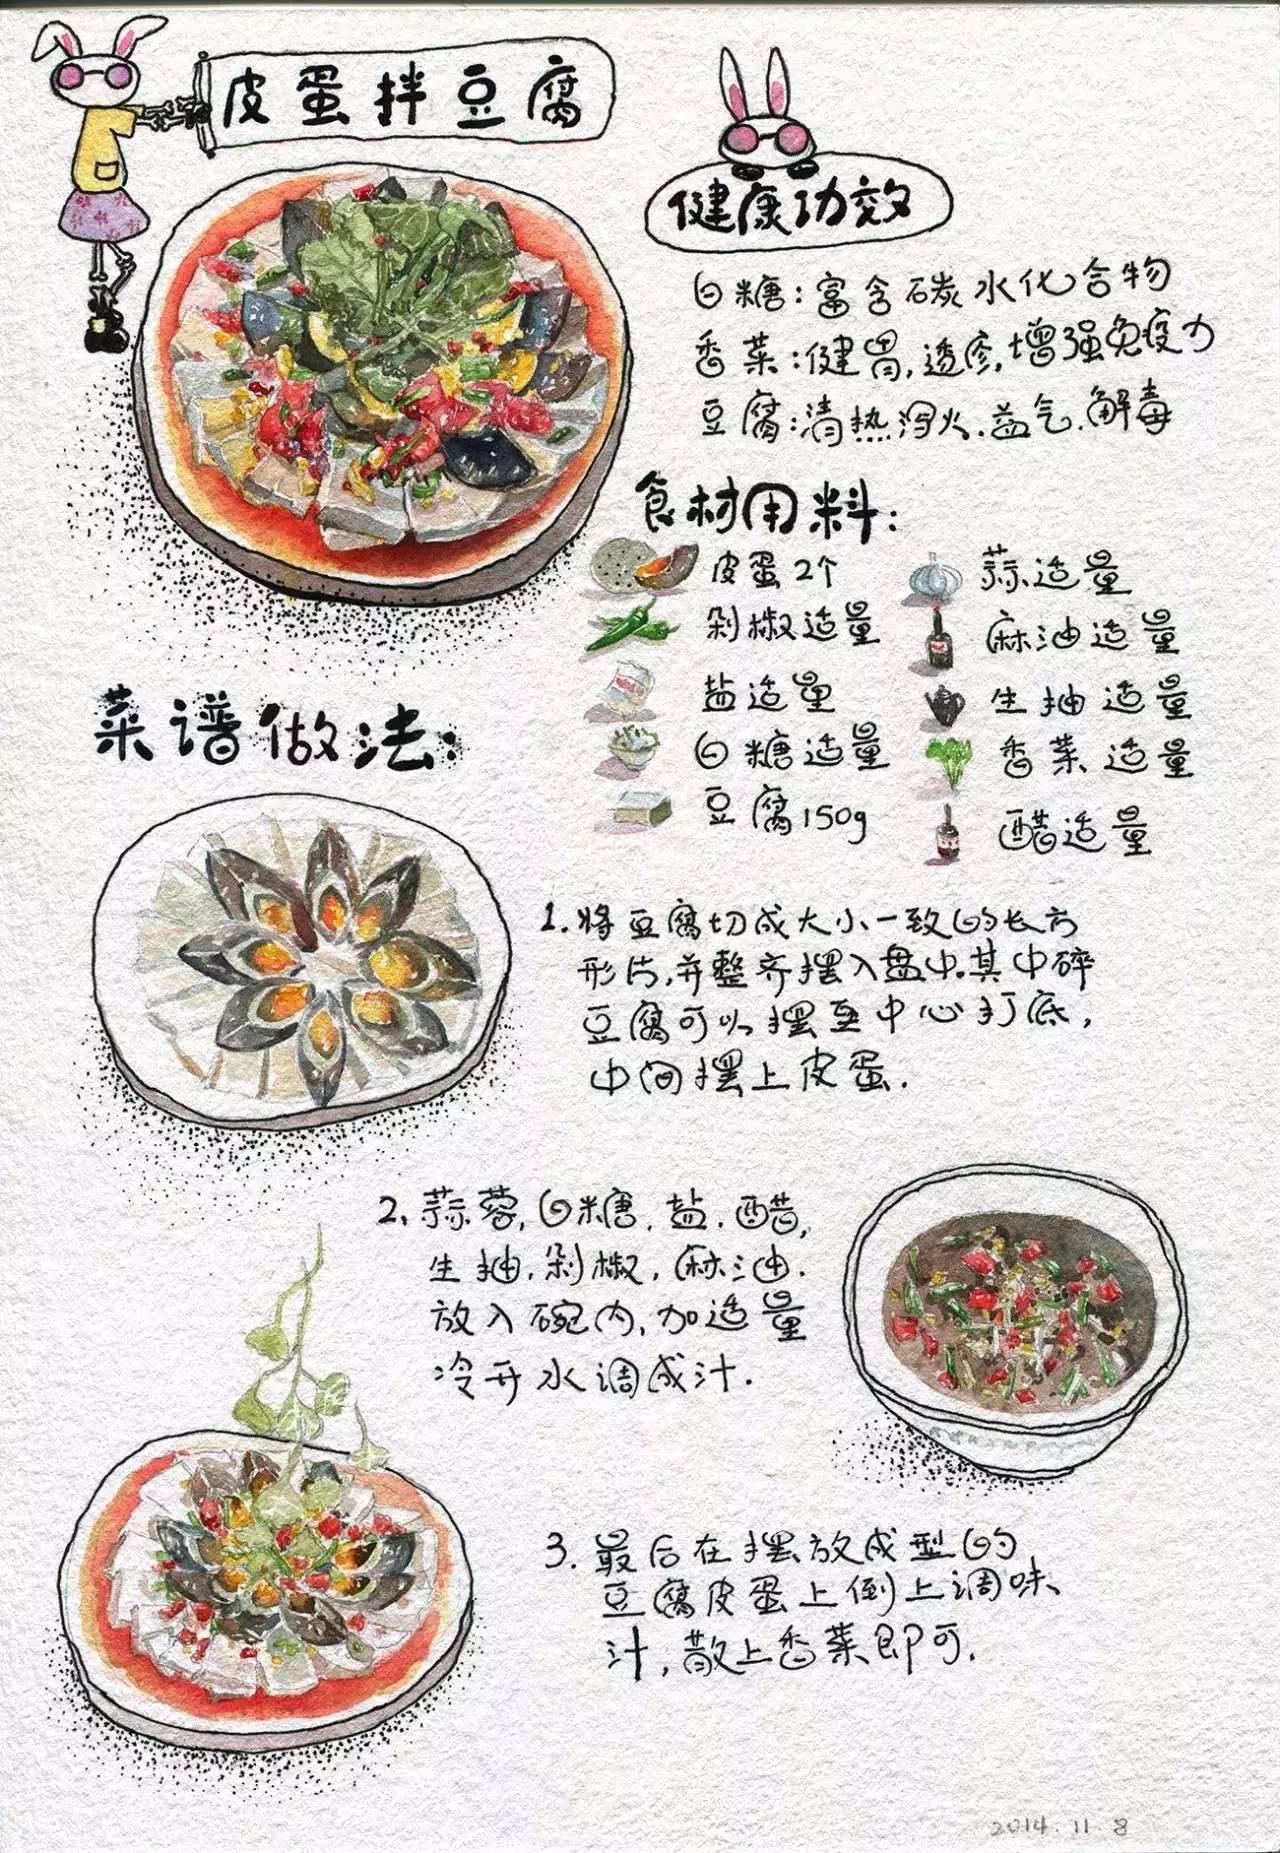 皮蛋拌豆腐
健康功效
白糖:富含碳水化合物
香菜:健胃,透疹,增强免疫力
豆腐:清热泻火.益气.解毒
食材用料:
皮蛋2个
蒜适量
剁椒适量
麻油适量
盐适量
生抽适量
白糖适量
香菜适量
豆腐150g
醋适量
菜谱做法:
1.将豆腐切成大小一致的长方
形片,并整齐摆入盘中.其中碎
豆腐可以摆至中心打底,
中间摆上皮蛋.
2.蒜蓉,白糖.盐.醋,
生抽.剁椒,麻油.
放入碗内,加适量
冷开水调成汁.
3.最后在摆放成型的
豆腐皮蛋上倒上调味
汁,散上香菜即可.
2014.11.8